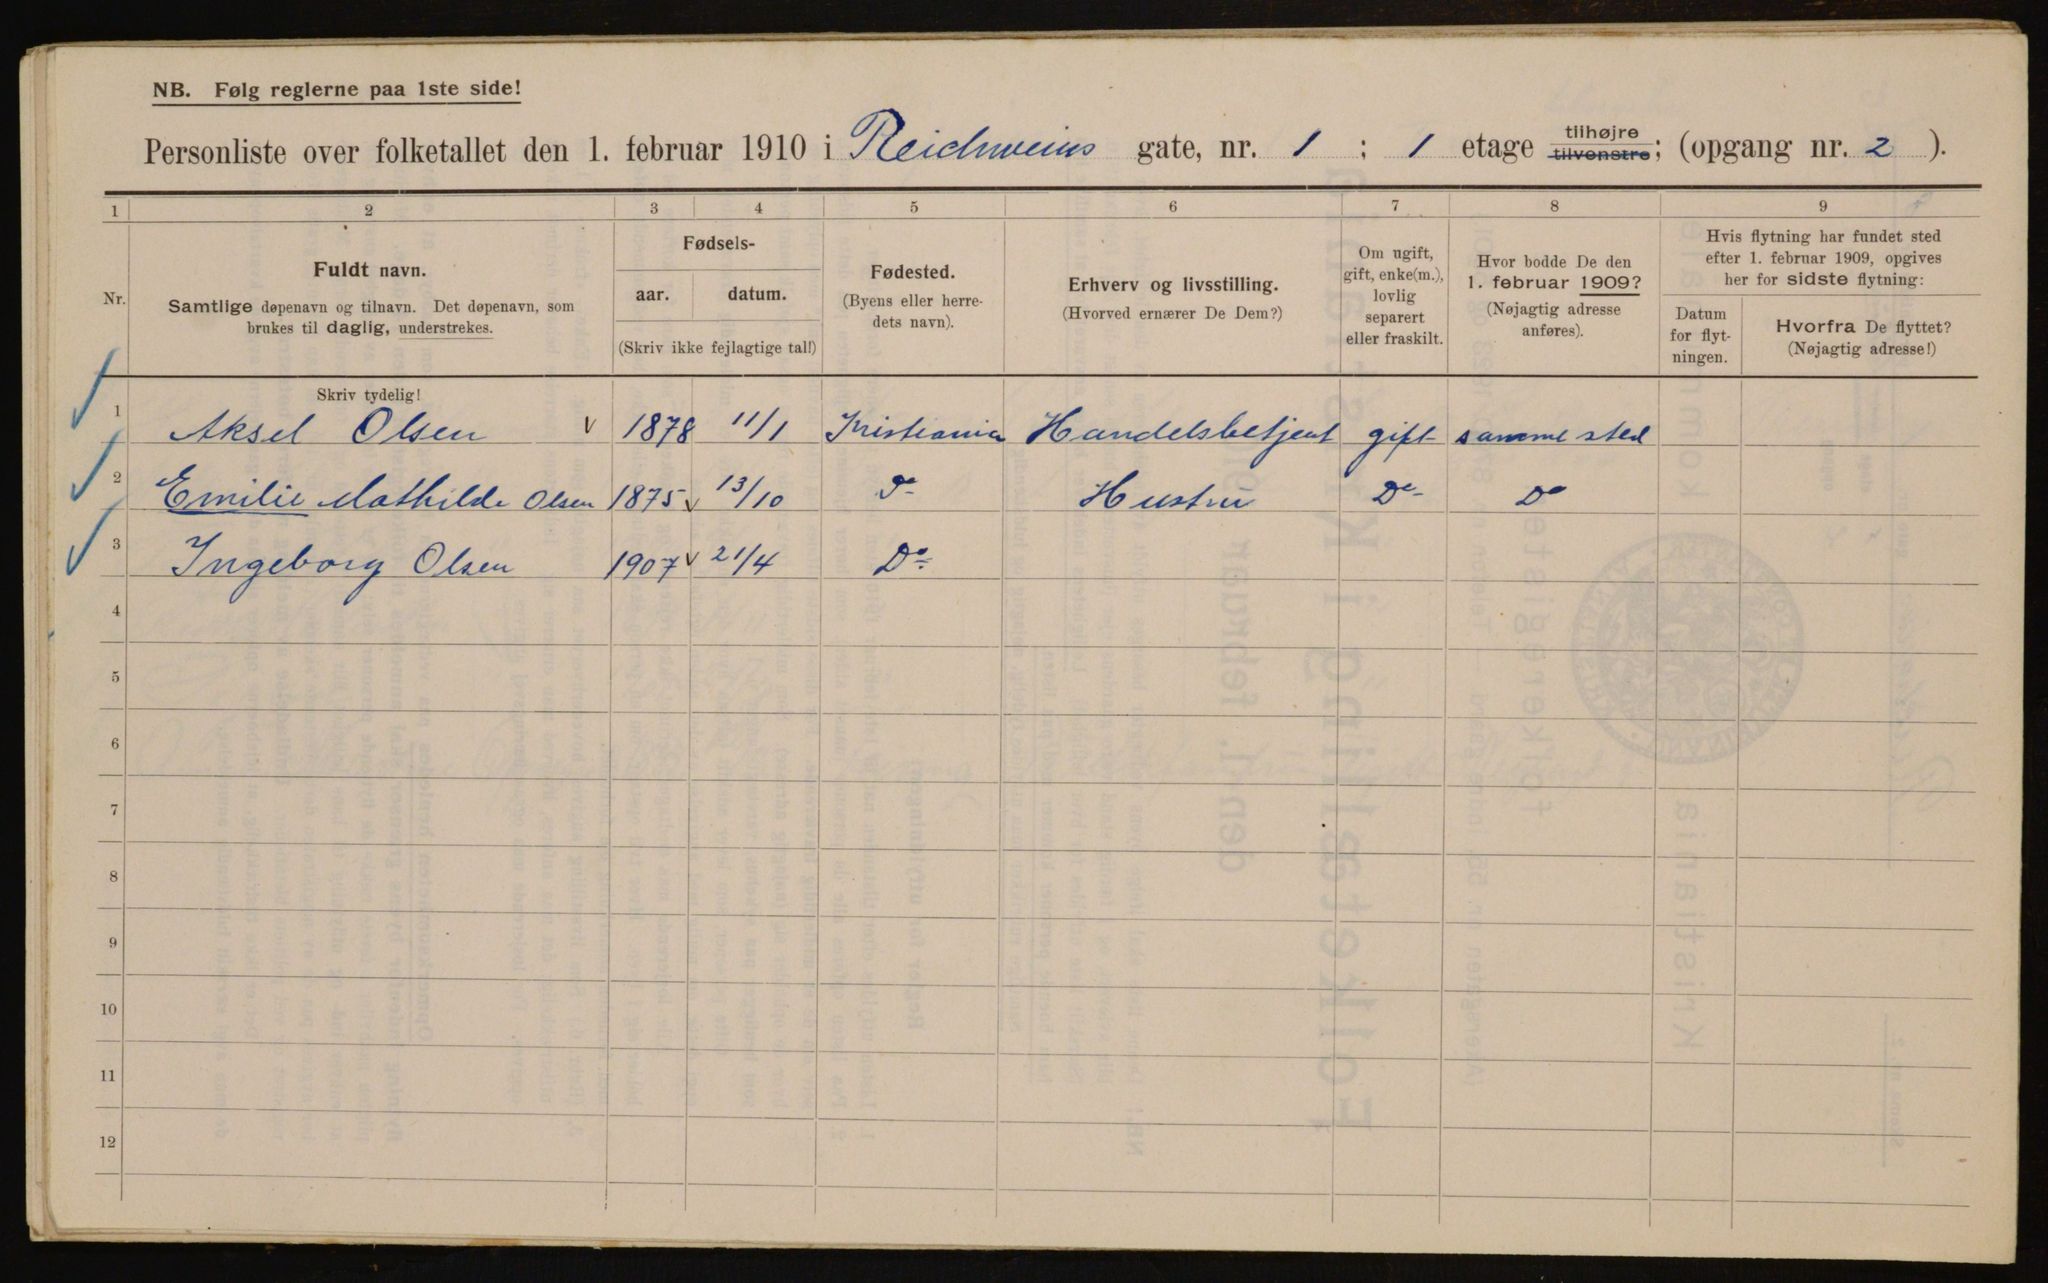 NB. Følg reglerne paa 1ste side!
Personliste over folketallet den 1. februar 1910 i Reichweins gate, nr. 1 ; 1 etage tilhøjre tilvenstre; (opgang nr. 2 ).
1 2 3 4 5 6 7 8 9
Nr.
Fuldt navn.
Samtlige døpenavn og tilnavn. Det døpenavn, som
brukes til daglig, understrekes.
Fødsels-
aar. datum.
(Skriv ikke fejlagtige tal!)
Fødested.
(Byens eller herre-
dets navn).
Erhverv og livsstilling.
(Hvorved ernærer De Dem?)
Om ugift,
gift, enke(m.),
lovlig
separert
eller fraskilt.
Hvor bodde De den
1. februar 1909?
(Nøjagtig adresse
anføres).
Hvis flytning har fundet sted
efter 1. februar 1909, opgives
her for sidste flytning:
Datum
for flyt-
ningen.
Hvorfra De flyttet?
(Nøjagtig adresse!)
Skriv tydelig!
1 Aksel Olsen 1878 11/1 Kristiania Handelsbetjent gift samme sted
2 Emilie Mathilde Olsen 1875 13/10 Do Hustru Do Do
3 Ingeborg Olsen 1907 21/4 Do
4
5
6
7
8
9
10
11
12